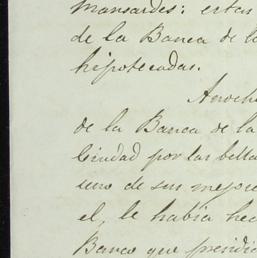 mansardes: estas
de la Banca de la
hipotecadas.
Anoche
de la Banca de la
Ciudad por las bella
uno de sus mejore
el, le habia hec
Banco que presidi